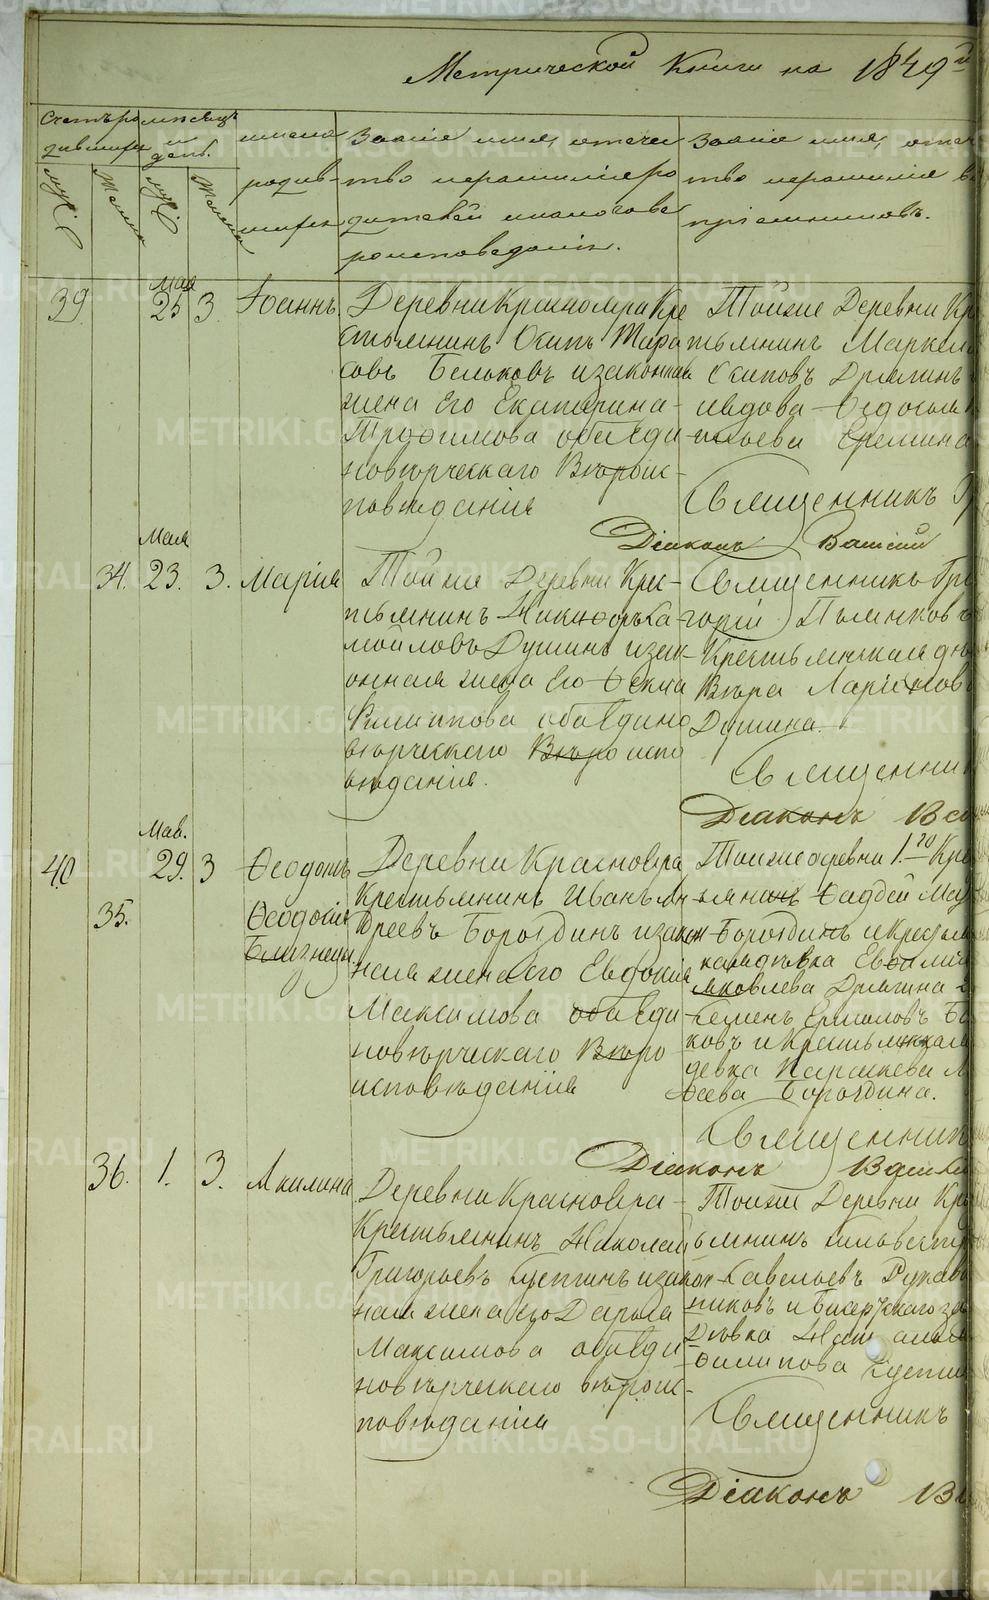 Метрической Книги на 1849й
Счетъ родившихся
муж.
Женска
месяцъ и день.
муж.
Женска
имена родившихся
Звание имя, отечество и фамилие родителей и какого вероисповедания.
Звание имя, отече
ство и фамилие во
приемниковъ.
39.
Мая
25
3
Іоаннъ.
Деревни Краснояра Кре
стьянинъ Осипъ Тара
совъ Бельковъ и законная
жена Его Екатерина
Трофимова оба Еди
новѣрческаго Вѣроис-
повѣданія
Тойже Деревни Кр
тьянинъ Маркелъ
Осиповъ
и вдова Федосья
Еремина
Священникъ Гр
Діаконъ Василий
34.
Мая
23.
3.
Марія
Тойже Деревни Крес-
тьянинъ Никифоръ Са
мойловъ Душинъ и зак-
онная жена Его Фекла
Филиппова оба Едино
вѣрческаго Вѣроиспо
вѣданія.
Священникъ Гри
горій Пьянковъ
Крестьянская дѣ
Вѣра Ларионов
Душина.
Священник
Діаконъ Вас
40
35.
Мая.
29.
3
Ѳеодотъ
Ѳеодосія
Близнецы
Деревни Краснояра
Крестьянинъ Иванъ Ан
дреевъ Бороздинъ и закон
ная жена Его Евдокія
Максимова оба Еди
новѣрческаго Вѣро
исповѣданія
Тойже деревни 1.го Кре
янинъ Фаддей Ма
Бороздинъ и Крестьян
ская дѣвка Евфимія
Яковлева
Семенъ Ермоловъ Бо
ковъ и Крестьянская
девка Параскева
Бороздина.
Священник
Діаконъ Васил
36.
1.
3.
Акилина
Деревни Краснояра
Крестьянинъ Николай
Григорьевъ Кустинъ и закон
ная жена его Дарья
Максимова оба Еди
новѣрческаго вѣроис-
повѣданія
Тойже Деревни Кре
ьянинъ Сильвестръ
Савельевъ
никовъ и Бисертскаго за
Дѣвка Наталья
Филипова Кустин
Священникъ
Діаконъ Ва
METRIKI.GASO-URAL.RU